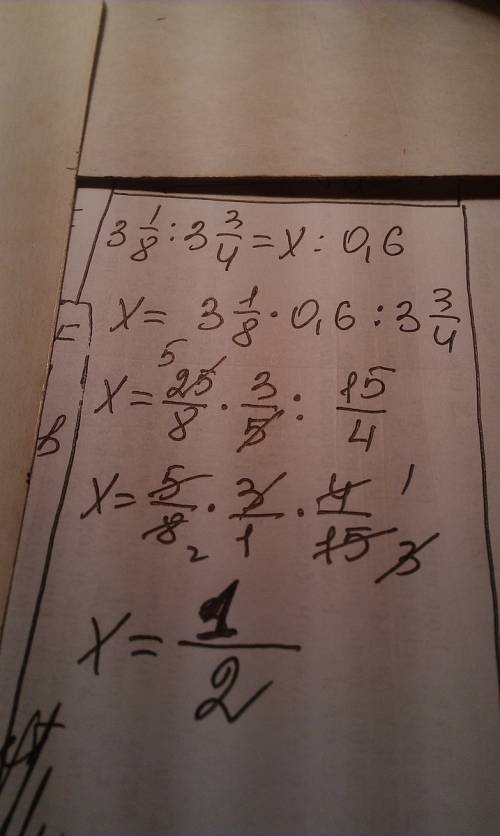 3 1/8 : 3 3/4 = x : 0,6
x = 3 1/8 · 0,6 : 3 3/4
5
x = 25/8 · 3/5 : 15/4
x = 5/8 · 3/1 · 4/15 1
2 3
x = 1/2